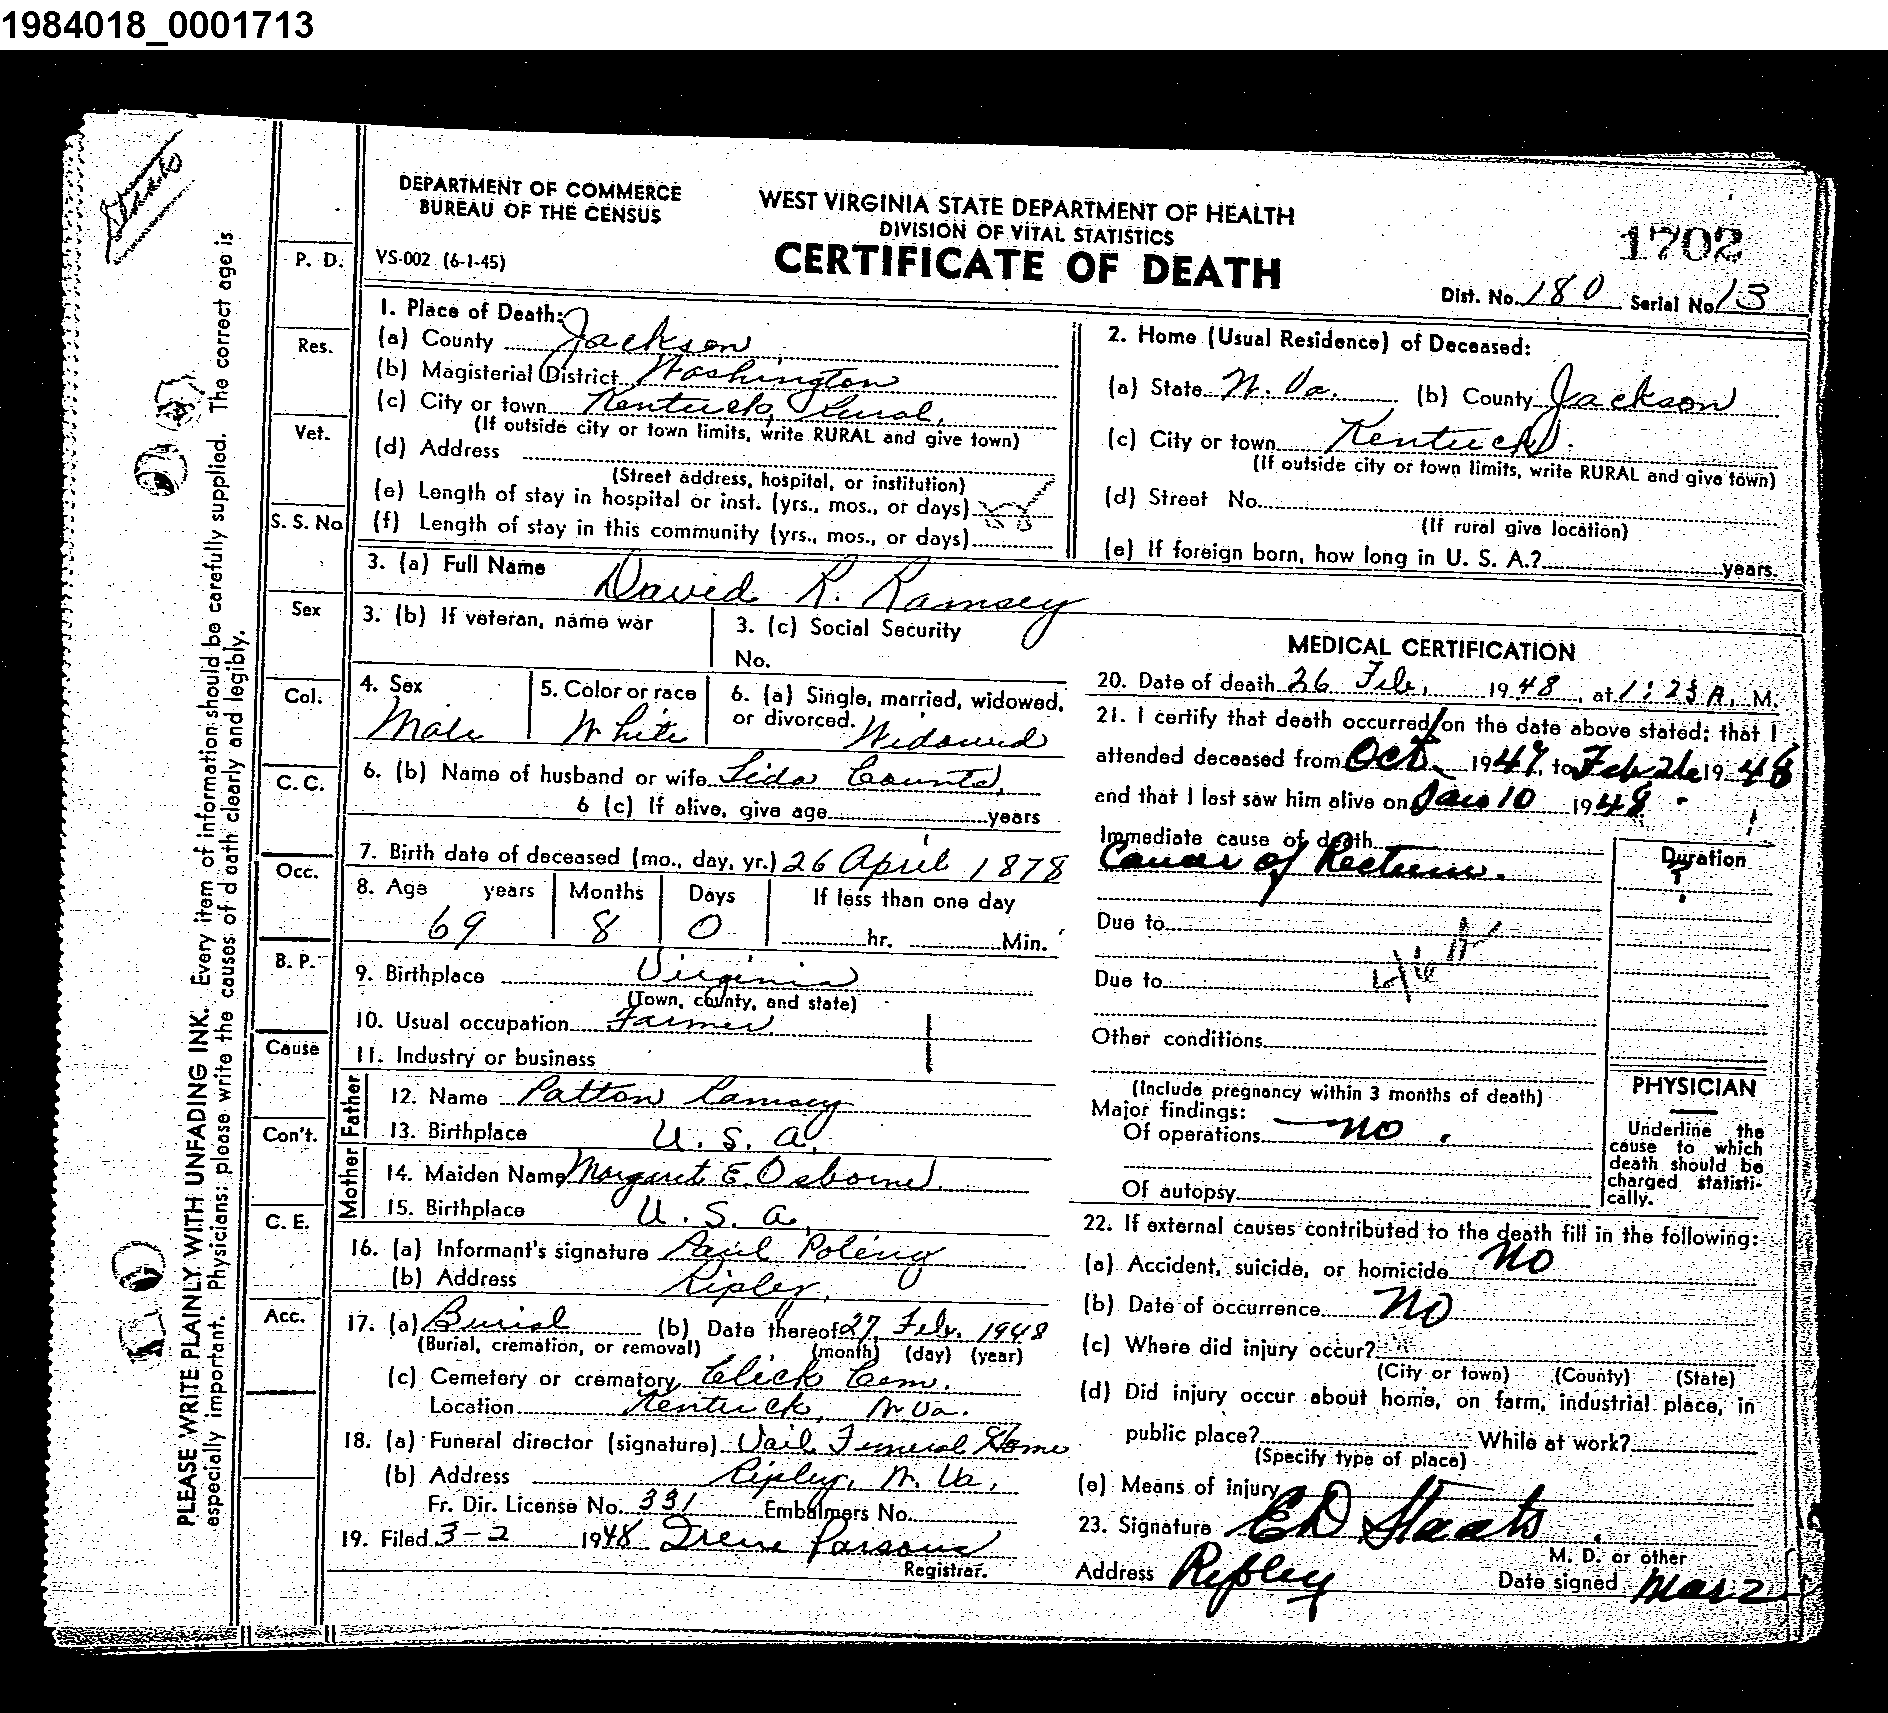 1984018_0001713
Staats
DEPARTMENT OF COMMERCE
BUREAU OF THE CENSUS
WEST VIRGINIA STATE DEPARTMENT OF HEALTH
DIVISION OF VITAL STATISTICS
CERTIFICATE OF DEATH
VS-002 (6-1-45)
1702
Dist. No. 180 Serial No. 13
1. Place of Death:
(a) County Jackson
(b) Magisterial District Washington
(c) City or town Kentuck, Rural,
(If outside city or town limits, write RURAL and give town)
(d) Address
(Street address, hospital, or institution)
(e) Length of stay in hospital or inst. (yrs., mos., or days)
(f) Length of stay in this community (yrs., mos., or days)
2. Home (Usual Residence) of Deceased:
(a) State W. Va. (b) County Jackson
(c) City or town Kentuck.
(If outside city or town limits, write RURAL and give town)
(d) Street No.
(If rural give location)
(e) If foreign born, how long in U. S. A.? years.
3. (a) Full Name David R. Ramsey
3. (b) If veteran, name war
3. (c) Social Security
No.
4. Sex Male
5. Color or race White
6. (a) Single, married, widowed,
or divorced. Widowed
6. (b) Name of husband or wife Lida Counts,
6 (c) If alive, give age years
7. Birth date of deceased (mo., day, yr.) 26 April 1878
8. Age years Months Days If less than one day
69 8 0 hr. Min.
9. Birthplace Virginia
(Town, county, and state)
10. Usual occupation Farmer
11. Industry or business
Father
12. Name Patton Ramsey
13. Birthplace U. S. A.
Mother
14. Maiden Name Margaret E. Osborne
15. Birthplace U. S. A.
16. (a) Informant's signature Paul Poling
(b) Address Ripley.
17. (a) Burial (b) Date thereof 27 Feb. 1948
(Burial, cremation, or removal) (month) (day) (year)
(c) Cemetery or crematory Click Cem.
Location Kentuck, W Va.
18. (a) Funeral director (signature) Vail Funeral Home
(b) Address Ripley, W. Va.
Fr. Dir. License No. 331 Embalmers No.
19. Filed 3-2 1948 Irene Parsons
Registrar.
MEDICAL CERTIFICATION
20. Date of death 26 Feb, 1948, at 1:23 A. M.
21. I certify that death occurred on the date above stated; that I
attended deceased from Oct 1947, to Feb 26 1948
and that I last saw him alive on Jan 10 1948.
Immediate cause of death
Cancer of Rectum.
Duration
?
Due to
Due to
Other conditions
(Include pregnancy within 3 months of death)
Major findings:
Of operations no.
Of autopsy
PHYSICIAN
Underline the
cause to which
death should be
charged statisti-
cally.
22. If external causes contributed to the death fill in the following:
(a) Accident, suicide, or homicide No
(b) Date of occurrence No
(c) Where did injury occur?
(City or town) (County) (State)
(d) Did injury occur about home, on farm, industrial place, in
public place? While at work?
(Specify type of place)
(e) Means of injury
23. Signature ED Staats
M. D. or other
Address Ripley Date signed Mar 2
P. D.
Res.
Vet.
S. S. No
Sex
Col.
C. C.
Occ.
B. P.
Cause
Con't.
C. E.
Acc.
PLEASE WRITE PLAINLY WITH UNFADING INK. Every item of information should be carefully supplied. The correct age is
especially important. Physicians: please write the causes of death clearly and legibly.